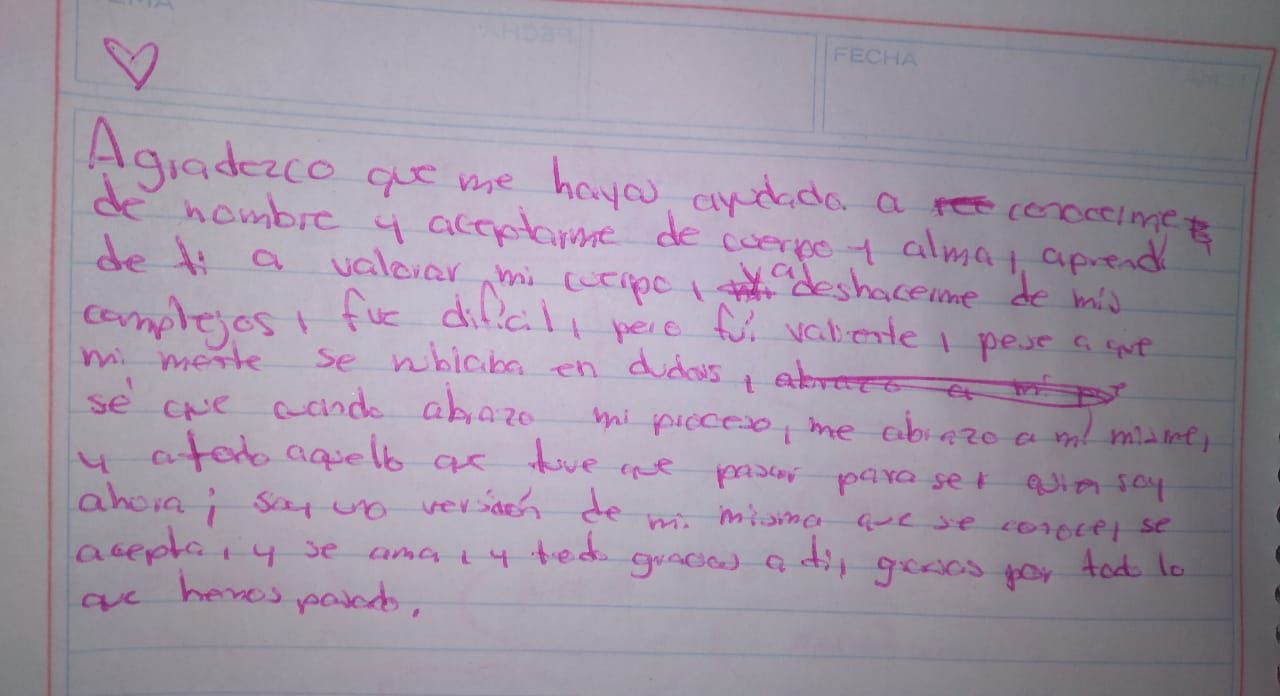 FECHA
Agradezco que me hayas ayudado a conocerme
de nombre y aceptarme de cuerpo y alma, aprendí
de ti a valorar mi cuerpo, y a deshacerme de mis
complejos, fue difícil, pero fui valiente, pese a que
mi mente se nublaba en dudas,
sé que cuando abrazo mi proceso, me abrazo a mí misma,
y a todo aquello que tuve que pasar para ser quien soy
ahora; soy una versión de mi misma que se conoce, se
acepta, y se ama, y todo gracias a ti, gracias por todo lo
que hemos pasado.